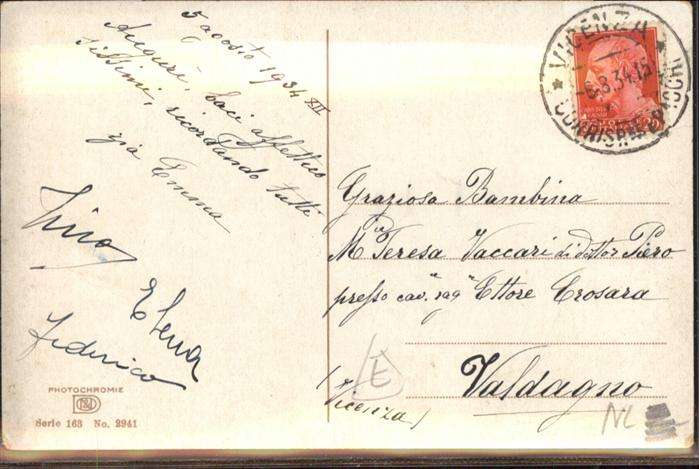 5 agosto 1934 XII
Auguri, baci affettuo
sissimi, ricordando tutti
zia Emma
Elena
Federico
PHOTOCHROMIE
Serie 163 No. 2941
VICENZA
6.8.34.15
CORRISPENZE
Graziosa Bambina
Mª Teresa Vaccari di dottor Piero
presso cav. rag. Ettore Crosara
Valdagno
(Vicenza)
E
NL